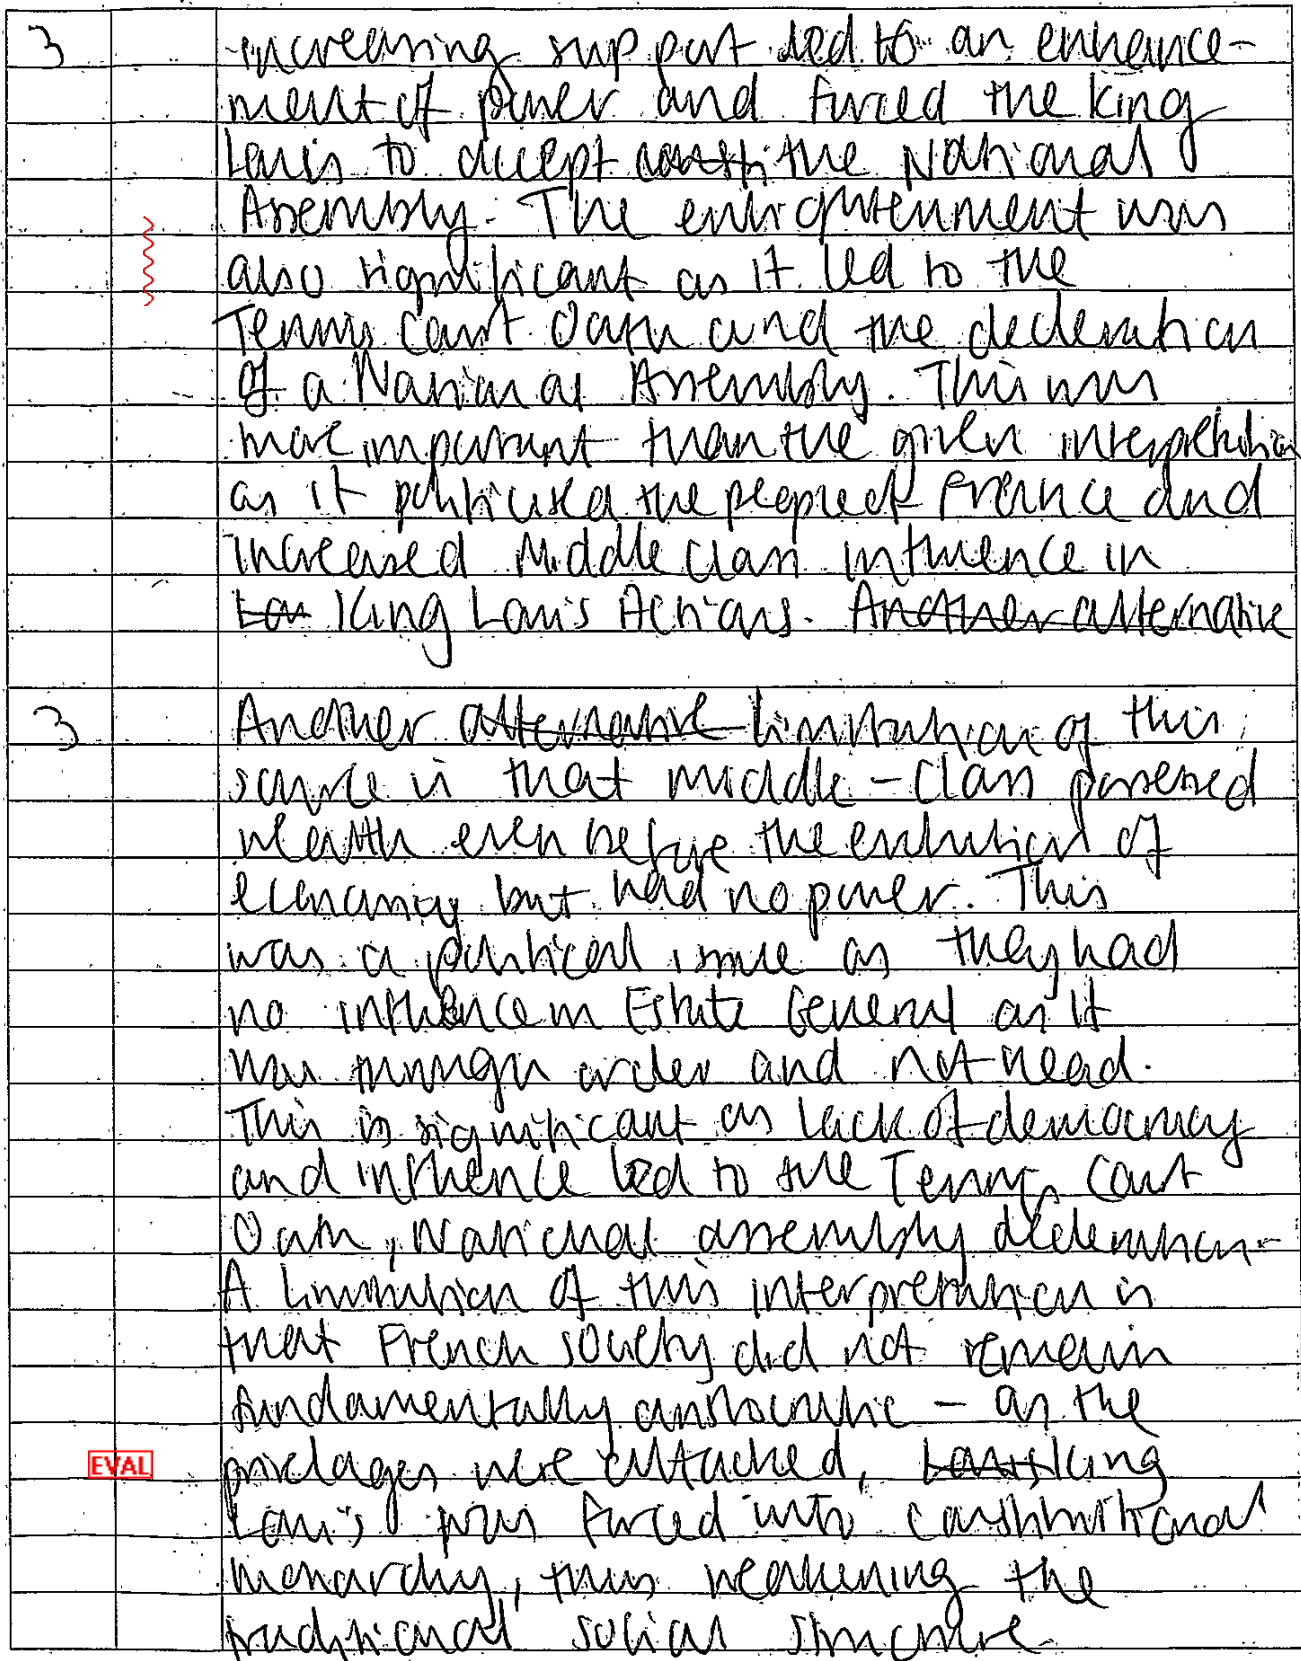 3 increasing support led to an enhance-
ment of power and forced the king
Louis to accept consti the National
Assembly. The enlightenment was
also significant as it led to the
Tennis Court Oath and the decleration
of a National Assembly. This was
more important than the given interpretation
as it politicised the people of France and
increased Middle class influence in
Lou King Louis Actions. Another alternative
3 Another alternative limitation of this
source is that middle-class possessed
wealth even before the evolution of
economy but had no power. This
was a political issue as they had
no influence in Estate General as it
was through order and not head.
This is significant as lack of democracy
and influence led to the Tennis Court
Oath, National assembly decleration.
A limitation of this interpretation is
that French society did not remain
fundamentally aristocratic - as the
EVAL privelages were attacked, Louis King
Louis was forced into constitutional
monarchy, thus weakening the
traditional social structure.